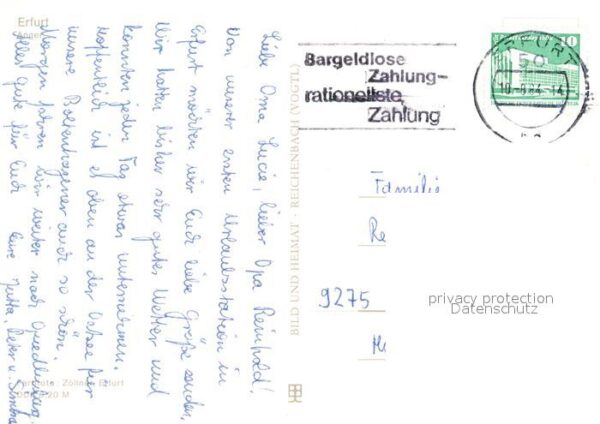 Erfurt
Liebe Oma Lucie, lieber Opa Reinhold!
Von unserer ersten Urlaubsstation in
Erfurt möchten wir Euch liebe Grüße senden.
Wir hatten bisher sehr gutes Wetter und
konnten jeden Tag etwas unternehmen.
Hoffentlich ist es oben an der Ostsee für
unsere Boltenhagener auch so schön.
Morgen fahren wir weiter nach Quedlinburg.
Alles Gute für Euch Eure Jutta, Peter u.
Farbfoto: Zöllner, Erfurt
BILD UND HEIMAT · REICHENBACH (VOGTL)
Bargeldlose
Zahlung-
rationellste
Zahlung
ERFURT
50
10
Familie
Re
9275
privacy protection
Datenschutz